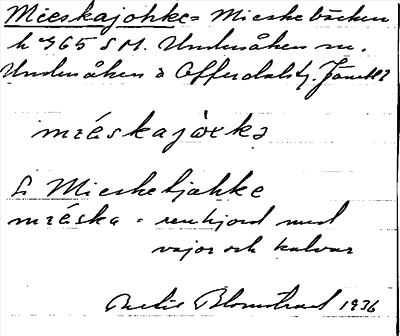 Mieskajohke = Mieskebäcken
h 965 S M. Undersåker sn.
Undersåkers & Offerdals tj. Jämtl.
mıéskajòxkə
L Mieskeljahke
mıéska = renhjord med
vajor och kalvar
Blomstrand 1936